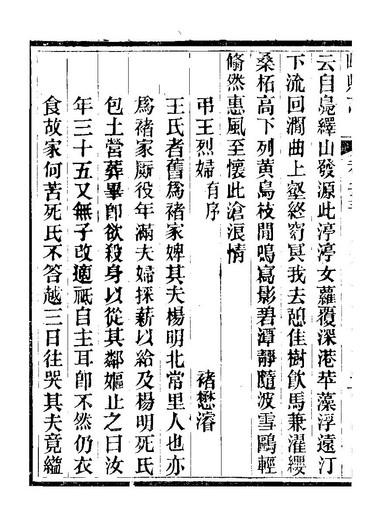 云自鳧繹山發源此渟渟女蘿覆深港苹藻浮遠汀
下流回澗曲上壑終窈冥我去憩佳樹飲馬兼濯纓
桑柘高下列黃鳥枝間鳴寫影碧潭靜隨波雪鷗輕
翛然惠風至懷此滄浪情
弔王烈婦有序
褚懋濬
王氏者舊為褚家婢其夫楊明北常里人也亦
為褚家厮役年滿夫婦採薪以給及楊明死氏
包土營葬畢即欲殺身以從其鄰嫗止之曰汝
年三十五又無子改適祇自主耳即不然仍衣
食故家何苦死氏不答越三日往哭其夫竟縊